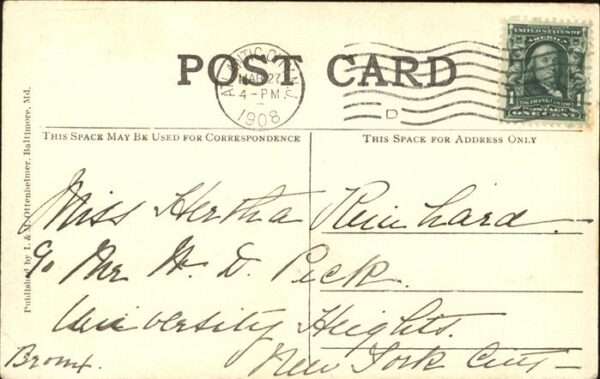 POST CARD
ATLANTIC CITY, N.J.
MAR 27
4-PM
1908
D
UNITED STATES OF AMERICA
1 1
ONE CENT
THIS SPACE MAY BE USED FOR CORRESPONDENCE
THIS SPACE FOR ADDRESS ONLY
Published by I. & M. Ottenheimer, Baltimore, Md.
Miss Hertha Reinhard.
c/o Mr H. D. Peck.
University Heights.
Bronx. New York City